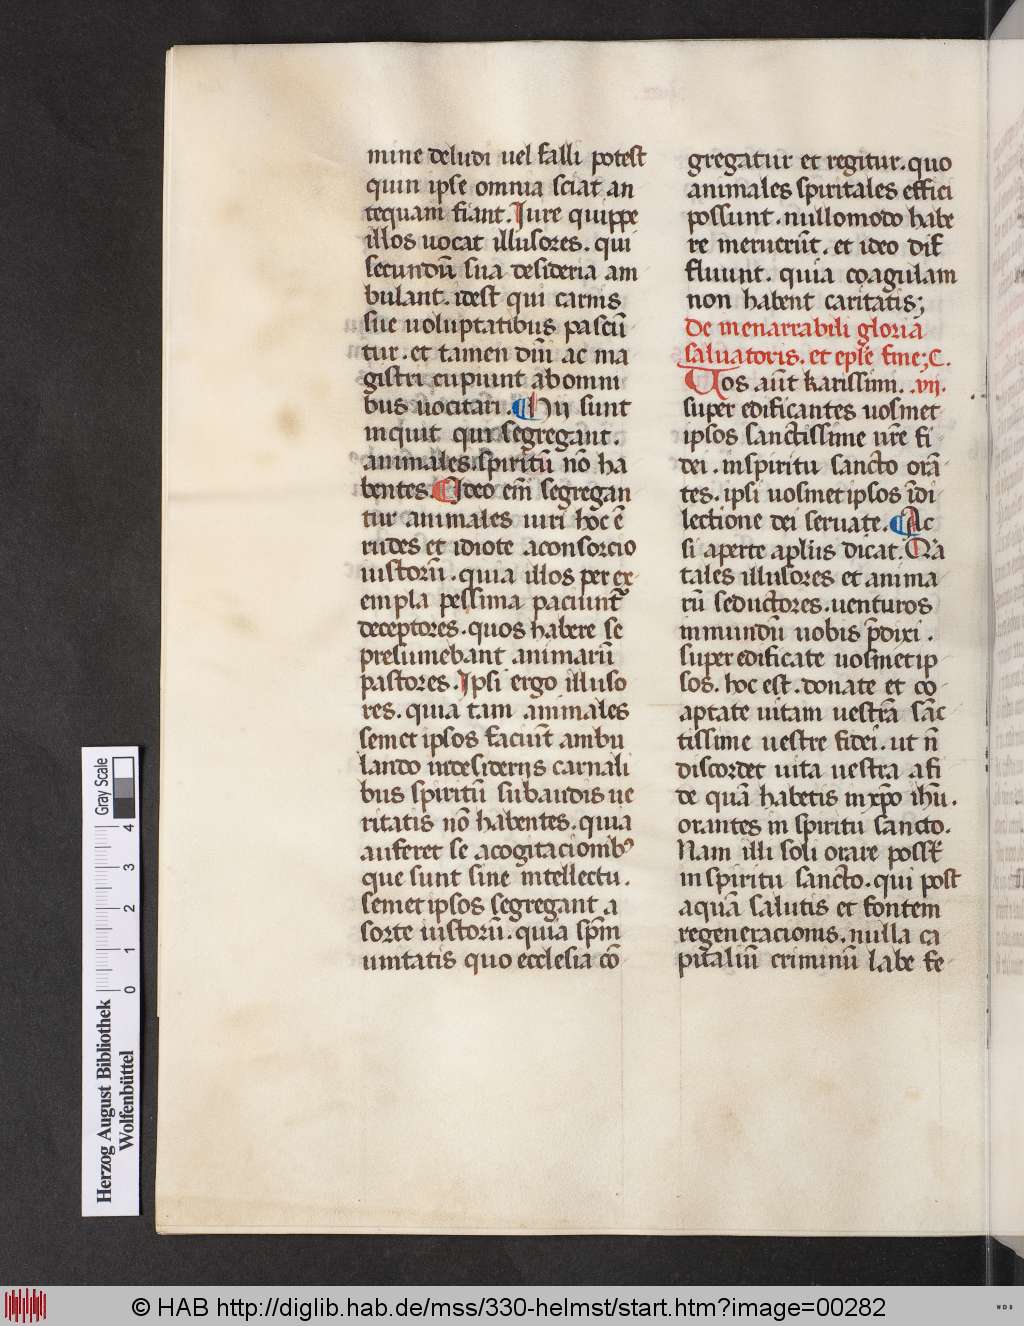 mine deludi uel falli potest
quin ipse omnia sciat an
tequam fiant. Iure quippe
illos uocat illusores. qui
secundū sua desideria am
bulant. idest qui carnis
sue uoluptatibus pascū
tur. et tamen diīi ac ma
gistri cupiunt ab omni
bus uocitari. ¶ Hij sunt
inquit qui segregant.
animales. spiritū nō ha
bentes. ¶ Ideo em̄ segregan
tur animales uiri hoc ē
rudes et idiote aconsorcio
iustorū. quia illos per ex
empla pessima paciunt᷑
deceptores. quos habere se
presumebant animarū
pastores. Ipsi ergo illuso
res. quia tam animales
semet ipsos faciūt ambu
lando indesiderijs carnali
bus spiritū subaudis ue
ritatis nō habentes. quia
auferet se acogitacionibꝰ
que sunt sine intellectu.
semet ipsos segregant a
sorte iustorū. quia sp̄m
unitatis quo ecclesia cō
gregatur et regitur. quo
animales spiritales effici
possunt. nullomodo habe
re meruerūt. et ideo dif
fluunt. quia coagulam
non habent caritatis;
De inenarrabili gloria
saluatoris. et ep̄le fine; C.
Uos aūt karissimi. .vij.
super edificantes uosmet
ipsos sanctissime ur̄e fi
dei. inspiritu sancto orā
tes. ipsi uosmet ipsos īdi
lectione dei seruate. ¶ Ac
si aperte apliīs dicat. Na
tales illusores et anima
rū seductores. uenturos
inmundū uobis p̄dixi.
super edificate uosmet ip
sos. hoc est. donate et co
aptate uitam uestrā sāc
tissime uestre fidei. ut n̄
discordet uita uestra a fi
de quā habetis inxp̄o ihū.
orantes in spiritu sancto.
Nam illi soli orare possūt
in spiritu sancto. qui post
aquā salutis et fontem
regeneracionis. nulla ca
pitaliū criminū labe fe
Gray Scale
4
3
2
1
0
Herzog August Bibliothek
Wolfenbüttel
© HAB http://diglib.hab.de/mss/330-helmst/start.htm?image=00282